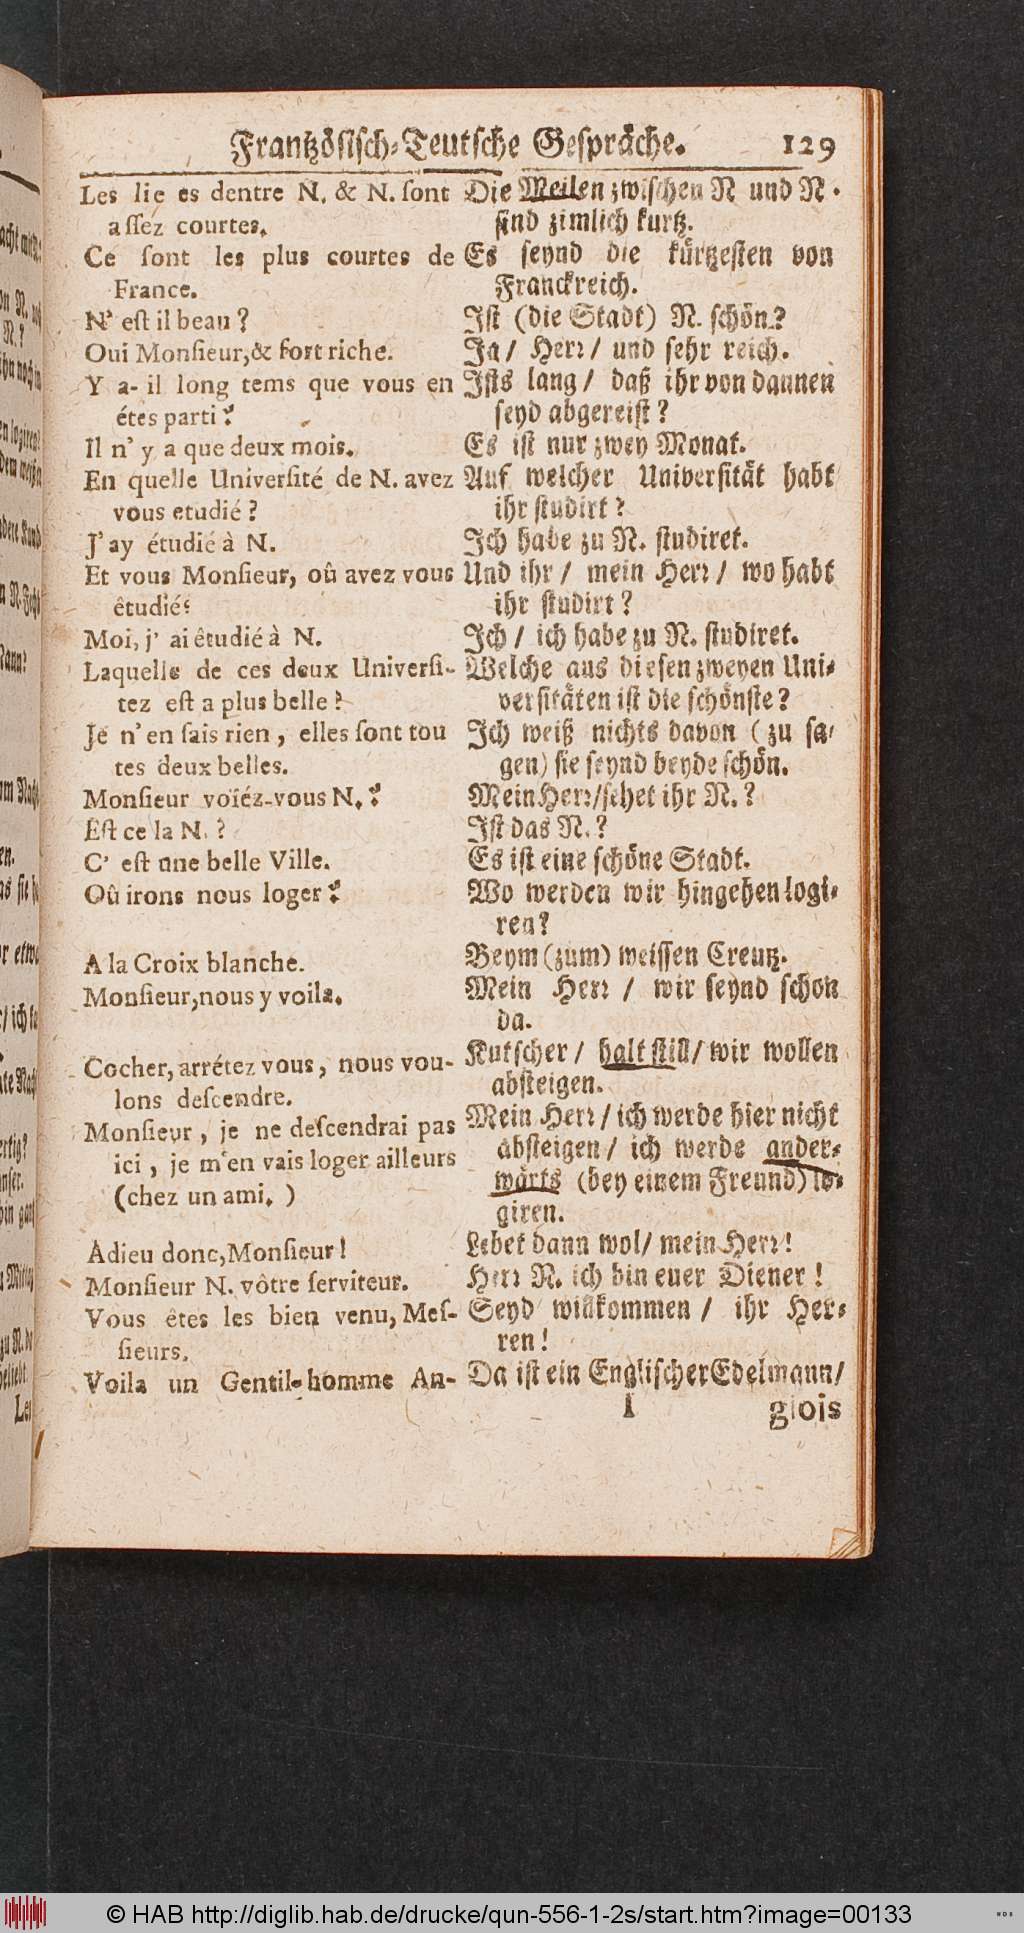 Frantzösisch-Teutsche Gespräche. 129
Les lie es dentre N. & N. ſont
aſſez courtes.
Ce ſont les plus courtes de
France.
N' eſt il beau ?
Oui Monſieur,& fort riche.
Y a-il long tems que vous en
étes parti ?
Il n' y a que deux mois.
En quelle Univerſité de N. avez
vous etudié ?
J' ay étudié à N.
Et vous Monſieur, oû avez vous
êtudié?
Moi, j' ai êtudié à N.
Laquelle de ces deux Univerſi-
tez eſt a plus belle ?
Je n' en ſais rien , elles ſont tou
tes deux belles.
Monſieur voïéz-vous N. ?
Eſt ce la N. ?
C' eſt une belle Ville.
Oû irons nous loger ?
A la Croix blanche.
Monſieur,nous y voila.
Cocher, arrétez vous , nous vou-
lons deſcendre.
Monſieur , je ne deſcendrai pas
ici , je m'en vais loger ailleurs
(chez un ami. )
Adieu donc,Monſieur !
Monſieur N. vôtre ſerviteur.
Vous êtes les bien venu, Meſ-
ſieurs.
Voila un Gentil-homme An-
Die Meilen zwiſchen N und N.
ſind zimlich kurtz.
Es ſeynd die kürtzeſten von
Franckreich.
Iſt (die Stadt) N. ſchön.?
Ja / Herr / und ſehr reich.
Iſts lang / daß ihr von dannen
ſeyd abgereiſt ?
Es iſt nur zwey Monat.
Auf welcher Univerſität habt
ihr ſtudirt ?
Ich habe zu N. ſtudiret.
Und ihr / mein Herr / wo habt
ihr ſtudirt ?
Ich / ich habe zu N. ſtudiret.
Welche aus dieſen zweyen Uni-
verſitäten iſt die ſchönſte ?
Ich weiß nichts davon ( zu ſa-
gen) ſie ſeynd beyde ſchön.
Mein Herr/ſehet ihr N. ?
Iſt das N. ?
Es iſt eine ſchöne Stadt.
Wo werden wir hingehen logi-
ren?
Beym (zum) weiſſen Creutz.
Mein Herr / wir ſeynd ſchon
da.
Kutſcher / halt ſtill/ wir wollen
abſteigen.
Mein Herr / ich werde hier nicht
abſteigen / ich werde ander-
wärts (bey einem Freund) lo-
giren.
Lebet dann wol/ mein Herr!
Herr N. ich bin euer Diener !
Seyd willkommen / ihr Her-
ren !
Da iſt ein Engliſcher Edelmann/
I glois
© HAB http://diglib.hab.de/drucke/qun-556-1-2s/start.htm?image=00133